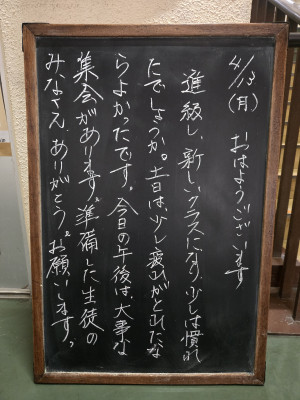 4/13(月) おはようございます
進級し、新しいクラスになり、少しは慣れ
たでしょうか。土日は、少し疲れがとれたな
らよかったです。今日の午後は、大事な
集会があります。準備した生徒の
みなさん、ありがとう。お願いします。